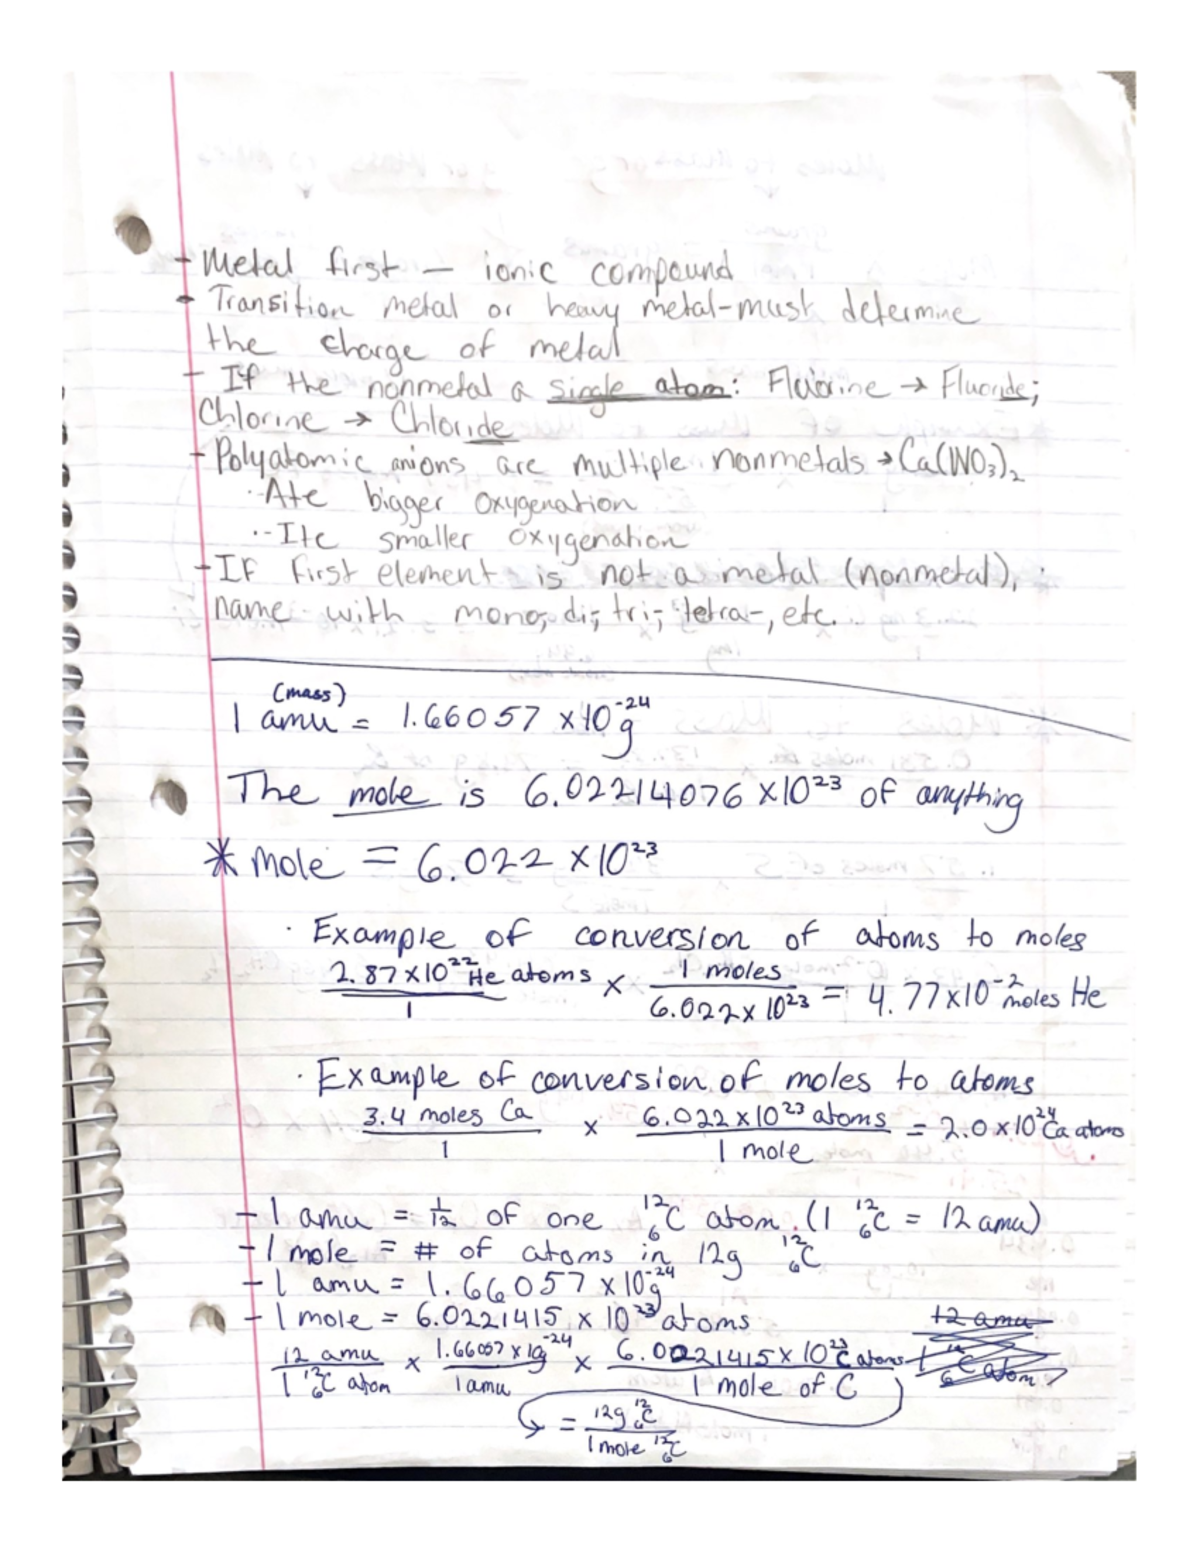 - Metal first — ionic compound
- Transition metal or heavy metal-must determine
the charge of metal
- If the nonmetal a single atom: Fluorine → Fluoride;
Chlorine → Chloride
- Polyatomic anions are multiple nonmetals → Ca(NO₃)₂
·-Ate bigger oxygenation
·-Ite smaller oxygenation
- If first element is not a metal (nonmetal),
name with mono-, di-, tri-, tetra-, etc.
(mass)
1 amu = 1.66057 x 10⁻²⁴ g
The mole is 6.02214076 x 10²³ of anything
* Mole = 6.022 x 10²³
· Example of conversion of atoms to moles
2.87 x 10²² He atoms / 1 x 1 moles / 6.022 x 10²³ = 4.77 x 10⁻² moles He
· Example of conversion of moles to atoms
3.4 moles Ca / 1 x 6.022 x 10²³ atoms / 1 mole = 2.0 x 10²⁴ Ca atoms
- 1 amu = 1/12 of one ¹²₆C atom. (1 ¹²₆C = 12 amu)
- 1 mole = # of atoms in 12g ¹²₆C
- 1 amu = 1.66057 x 10⁻²⁴ g
- 1 mole = 6.0221415 x 10²³ atoms
12 amu / 1 ¹²₆C atom x 1.66057 x 1g⁻²⁴ / 1 amu x 6.0221415 x 10²³ C atoms / 1 mole of C
= 12g ¹²₆C / 1 mole ¹²₆C